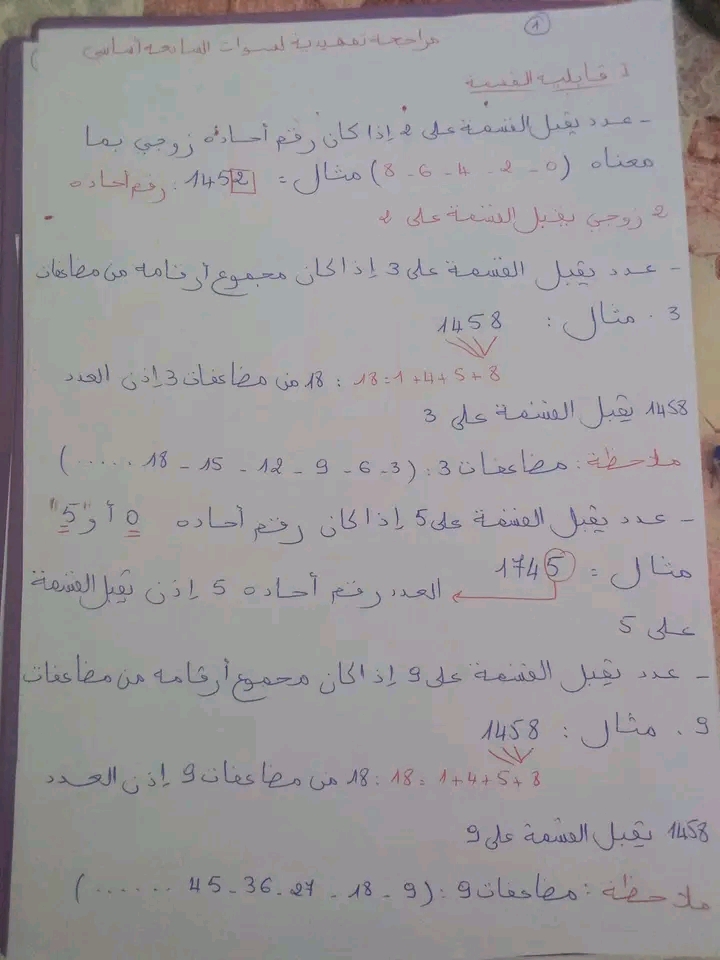 1
مراجعة تمهيدية لسنوات السابعة أساسي
1 قابلية القسمة
- عدد يقبل القسمة على 2 إذا كان رقم أحاده زوجي بما
معناه (0 - 2 - 4 - 6 - 8) مثال = 1452 : رقم أحاده
2 زوجي يقبل القسمة على 2
- عدد يقبل القسمة على 3 إذا كان مجموع أرقامه من مضاعفات
3 . مثال : 1458
18 = 1+4+5+8 : 18 من مضاعفات 3 إذن العدد
1458 يقبل القسمة على 3
ملاحظة : مضاعفات 3 : (3 - 6 - 9 - 12 - 15 - 18 .....)
- عدد يقبل القسمة على 5 إذا كان رقم أحاده 0 أو "5"
مثال = 1745 العدد رقم أحاده 5 إذن يقبل القسمة
على 5
- عدد يقبل القسمة على 9 إذا كان مجموع أرقامه من مضاعفات
9 . مثال : 1458
18 = 1+4+5+8 : 18 من مضاعفات 9 إذن العدد
1458 يقبل القسمة على 9
ملاحظة : مضاعفات 9 : (9 - 18 - 27 - 36 - 45 ......)